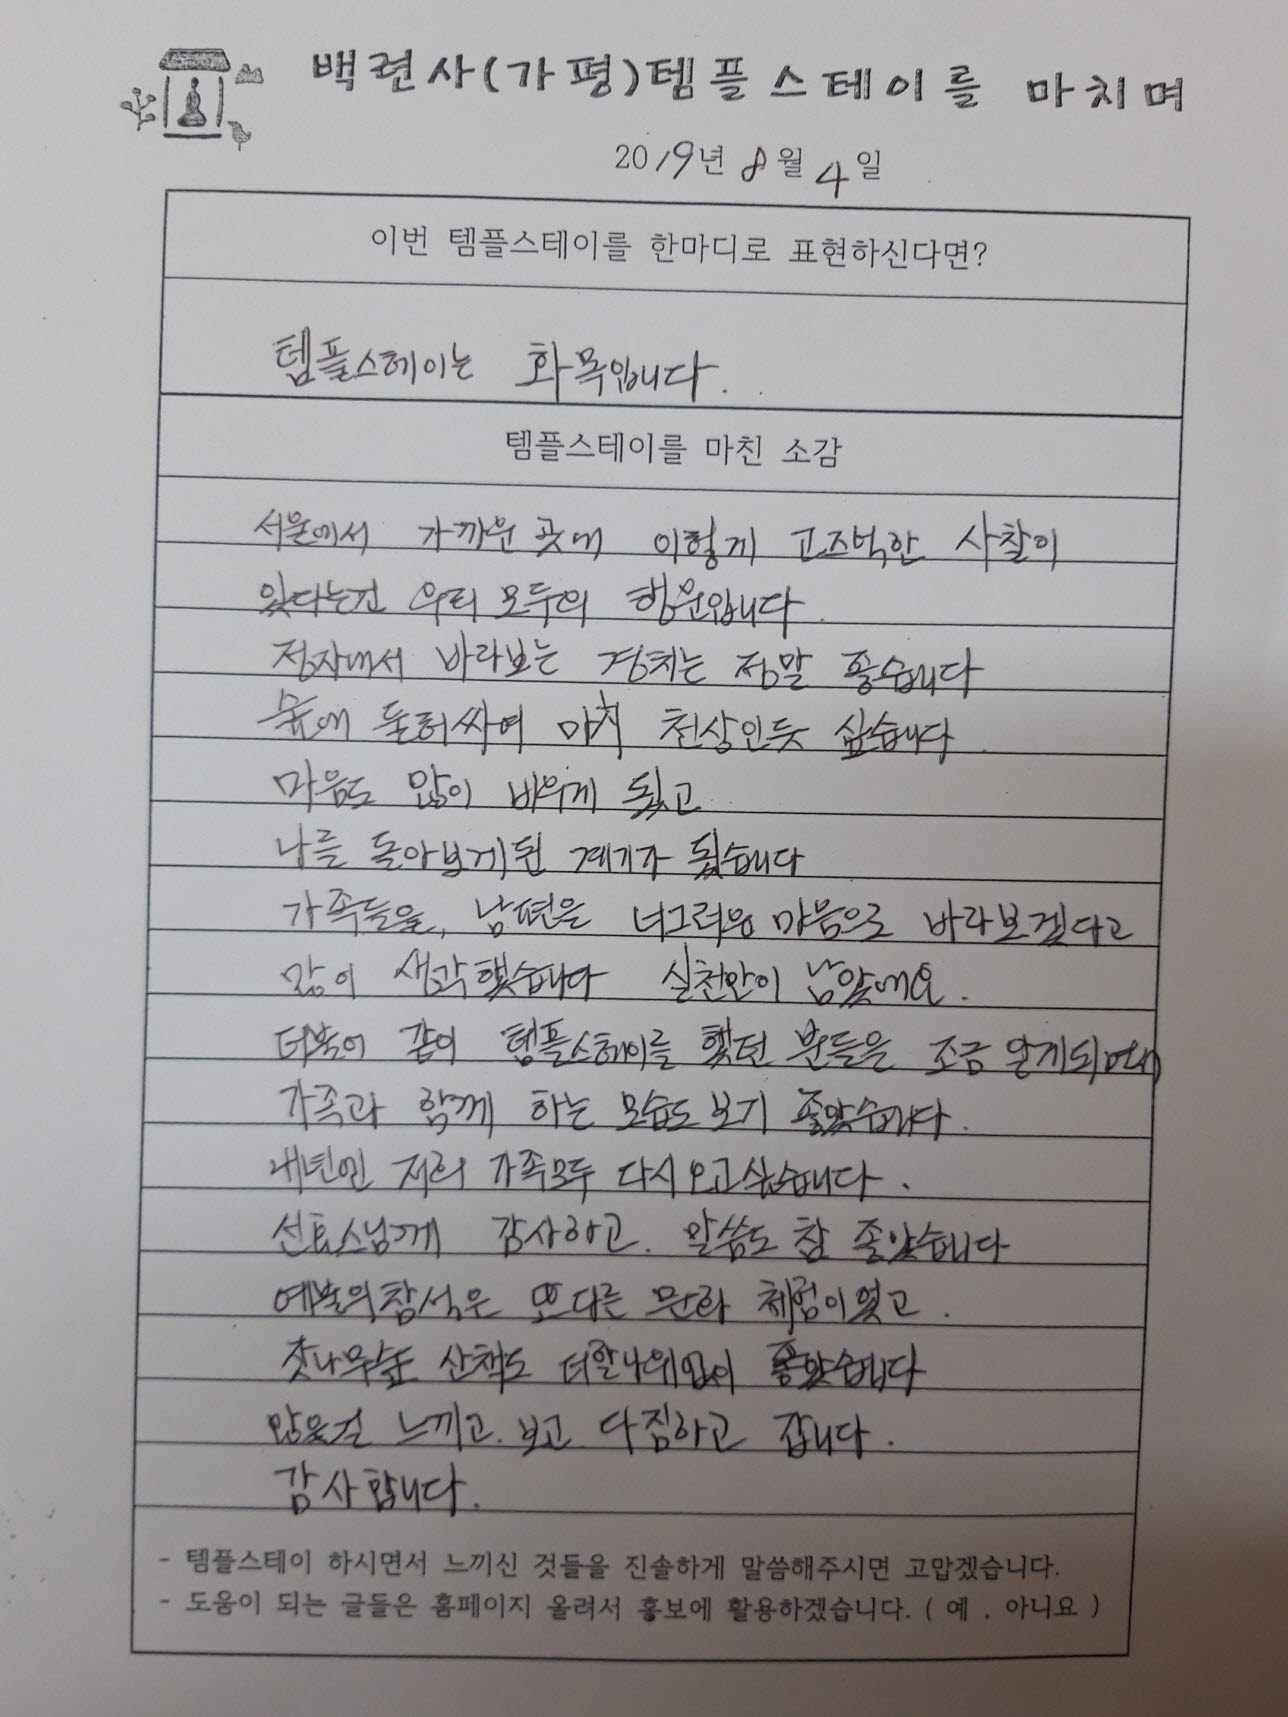 백련사(가평)템플스테이를 마치며
2019년 8월 4일
이번 템플스테이를 한마디로 표현하신다면?
템플스테이는 화목입니다.
템플스테이를 마친 소감
서울에서 가까운 곳에 이렇게 고즈넉한 사찰이
있다는건 우리 모두의 행운입니다.
정자에서 바라보는 경치는 정말 좋습니다
숲에 둘러싸여 마치 천상인듯 싶습니다.
마음도 많이 비우게 됬고
나를 돌아보게된 계기가 됬습니다
가족들을, 남편을 너그러운 마음으로 바라보겠다고
많이 생각했습니다 실천만이 남았네요.
더불어 같이 템플스테이를 했던 분들을 조금 알게되어
가족과 함께 하는 모습도 보기 좋았습니다.
내년엔 저희 가족모두 다시오고싶습니다.
스님께 감사하고. 말씀도 참 좋았습니다
예불의참석은 또다른 문화 체험이었고.
잣나무숲 산책도 더할나위없이 좋았습니다
많은걸 느끼고. 보고. 다짐하고 갑니다.
감사합니다.
- 템플스테이 하시면서 느끼신 것들을 진솔하게 말씀해주시면 고맙겠습니다.
- 도움이 되는 글들은 홈페이지 올려서 홍보에 활용하겠습니다. ( 예 . 아니요 )